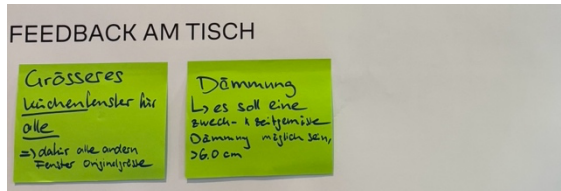 FEEDBACK AM TISCH
Grösseres
Küchenfenster für
alle
=> dafür alle andern
Fenster Originalgrösse
Dämmung
↳ es soll eine
zweck- & zeitgemässe
Dämmung möglich sein,
>6.0 cm